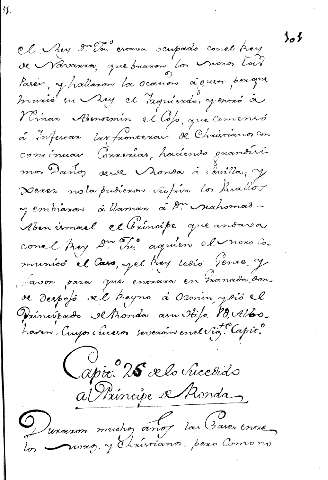 101
el Rey dn. Jno. estava ocupado con el Rey
de Navarra, que buscaron los Moros todos
Paser, y hallaron la ocasion á gusto, porque
murió su Rey el Izquierdo, y entró á
Reinar Abenozmin el Cojo, que comenzó
á Infestar las fronteras de Christianos con
continuas Correrias, haciendo grandisi-
mos Daños desde Ronda á Sevilla, y
Xerez no la pudieron sufrir los
y embiaron á llamar á dn. Mahomad
Aben ismael el Príncipe que andava
con el Rey dn. Jno. a quien el Moro co-
municó el Caso, y el Rey le dió Gente, y
para que entrara en Granada, don-
de despojó del Reyno á Ozmin, y dió el
Principado de Ronda a su Hijo
Cuyos sucesos se verán en el sigte. Capito.
Capito. 25 de lo Sucedido
al Príncipe de Ronda
Duraron muchos años las Pazes entre
los Moros, y Christianos, pero como no